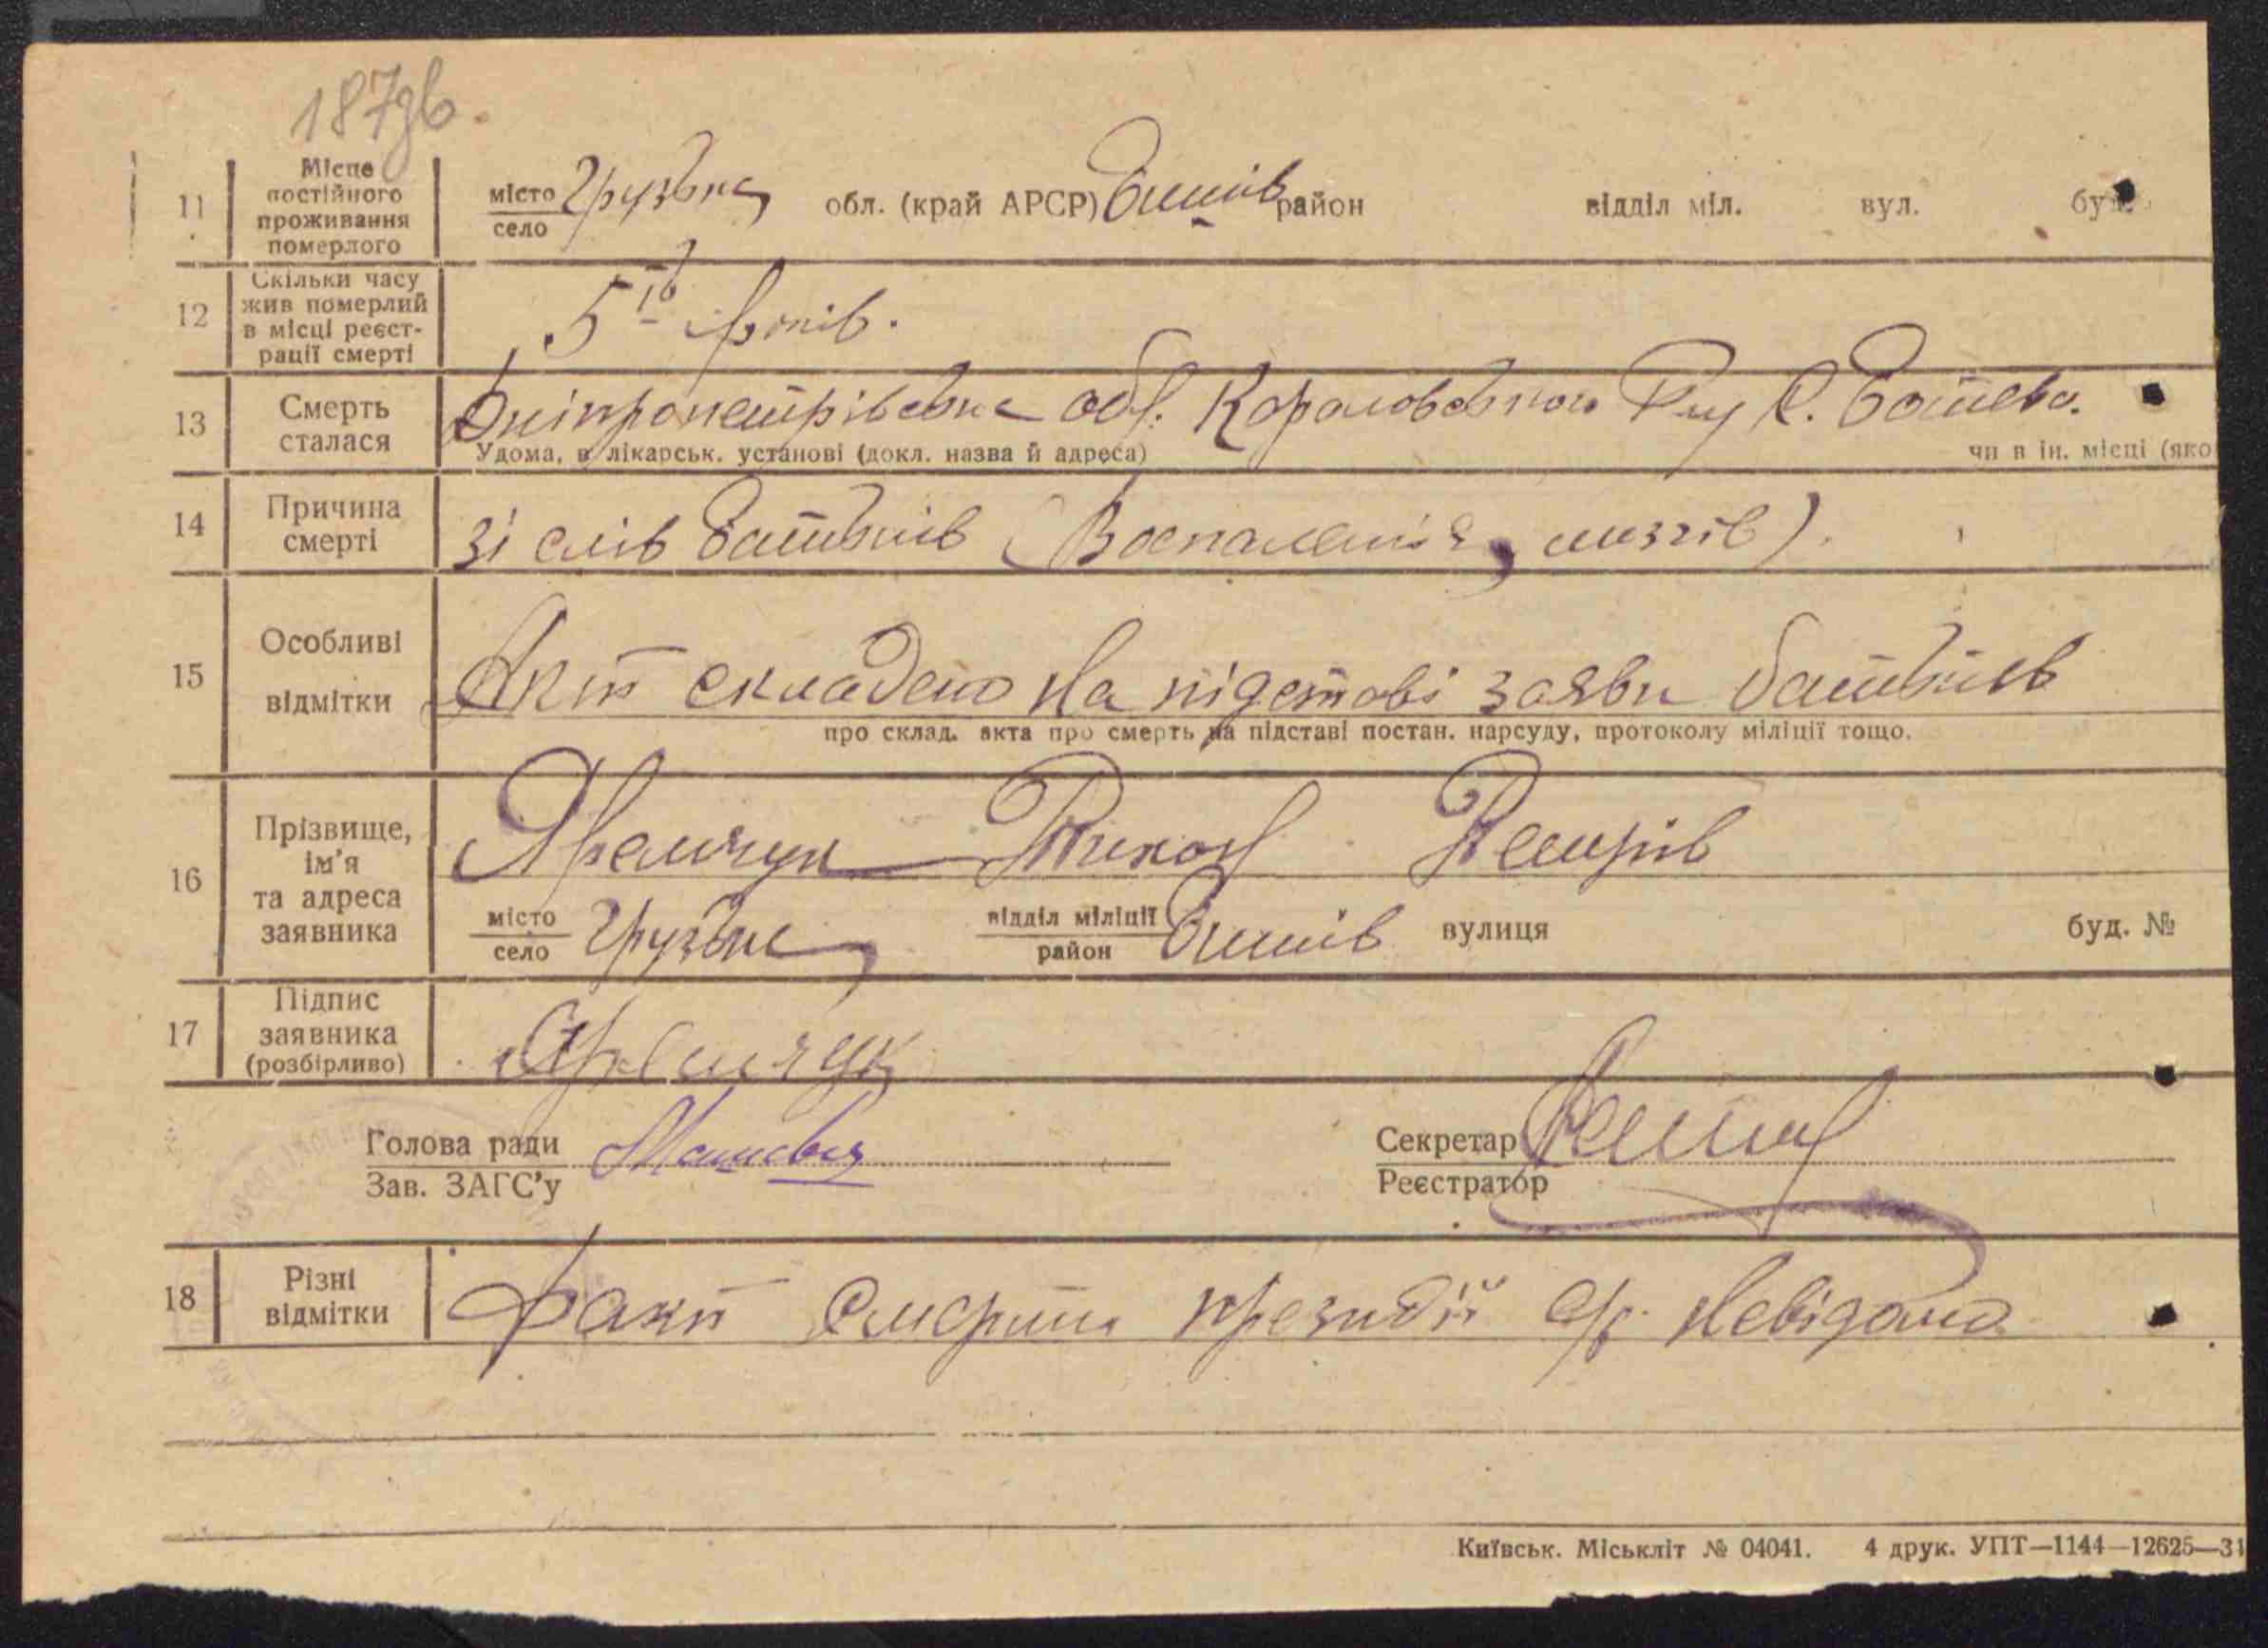 187зв.
11 Місце постійного проживання померлого
місто село Грузьке обл. (край АРСР) Бишів район відділ міл. вул. буд.
12 Скільки часу жив померлий в місці реєстрації смерті
5 років.
13 Смерть сталася
Дніпропетрівська обл. с.
Удома, в лікарськ. установі (докл. назва й адреса) чи в ін. місці (яко
14 Причина смерті
зі слів батьків (Воспаленія мозгів).
15 Особливі відмітки
Акт складено на підставі заяви батьків
про склад. акта про смерть на підставі постан. нарсуду, протоколу міліції тощо.
16 Прізвище, ім'я та адреса заявника
Яремчук Тихон Петрів
місто село Грузьке відділ міліції район Бишів вулиця буд. №
17 Підпис заявника (розбірливо)
Яремчук
Голова ради
Зав. ЗАГС'у
Секретар
Реєстратор
18 Різні відмітки
Факт смерти президії с/р. Невідомо
Київськ. Міськліт № 04041. 4 друк. УПТ—1144—12625—31